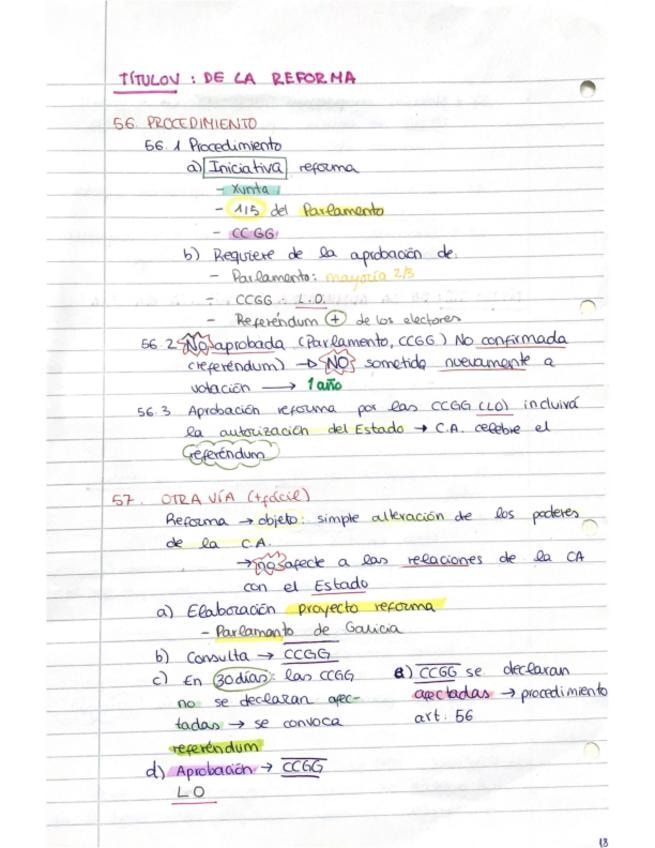 TÍTULO V : DE LA REFORMA
56. PROCEDIMIENTO
56.1 Procedimiento
a) Iniciativa reforma
- Xunta
- 1/5 del Parlamento
- CCGG
b) Requiere de la aprobación de:
- Parlamento: mayoría 2/3
- CCGG : L.O.
- Referéndum + de los electores
56.2 No aprobada (Parlamento, CCGG) No confirmada
(referéndum) → NO sometida nuevamente a
votación → 1 año
56.3 Aprobación reforma por las CCGG (LO) incluirá
la autorización del Estado → C.A. celebre el
referéndum
57. OTRA VÍA (+fácil)
Reforma → objeto: simple alteración de los poderes
de la C.A.
→ no afecte a las relaciones de la CA
con el Estado
a) Elaboración proyecto reforma
- Parlamento de Galicia
b) Consulta → CCGG
c) En 30 días: las CCGG
no se declaran afec-
tadas → se convoca
referéndum
d) Aprobación → CCGG
LO
e) CCGG se declaran
afectadas → procedimiento
art. 56
13